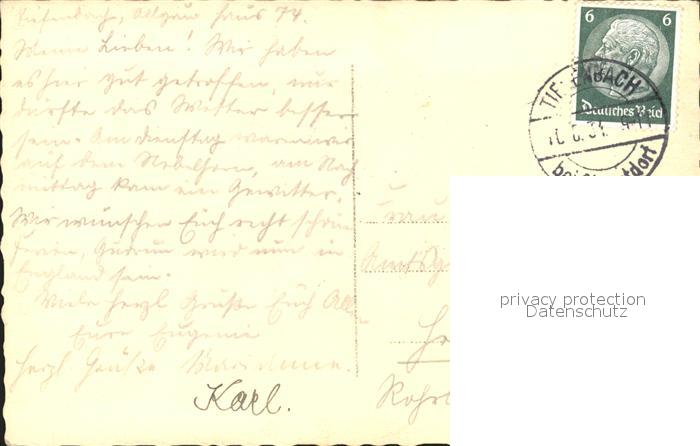 Tiefenbach, Allgäu Haus 74.
Meine Lieben! Wir haben
es hier gut getroffen, nur
dürfte das Wetter besser
sein. Am Dienstag waren wir
auf dem Nebelhorn, am Nach
mittag kam ein Gewitter.
Wir wünschen Euch recht schöne
Ferien, Gudrun wird nun in
England sein.
Viele herzl Grüße Euch All
Eure Eugenie
herzl. Grüße Marianne.
Karl.
6 6
Deutsches Reich
TIEFENBACH
bei Oberstdorf
Frau
Amtsg
Rohr
privacy protection
Datenschutz